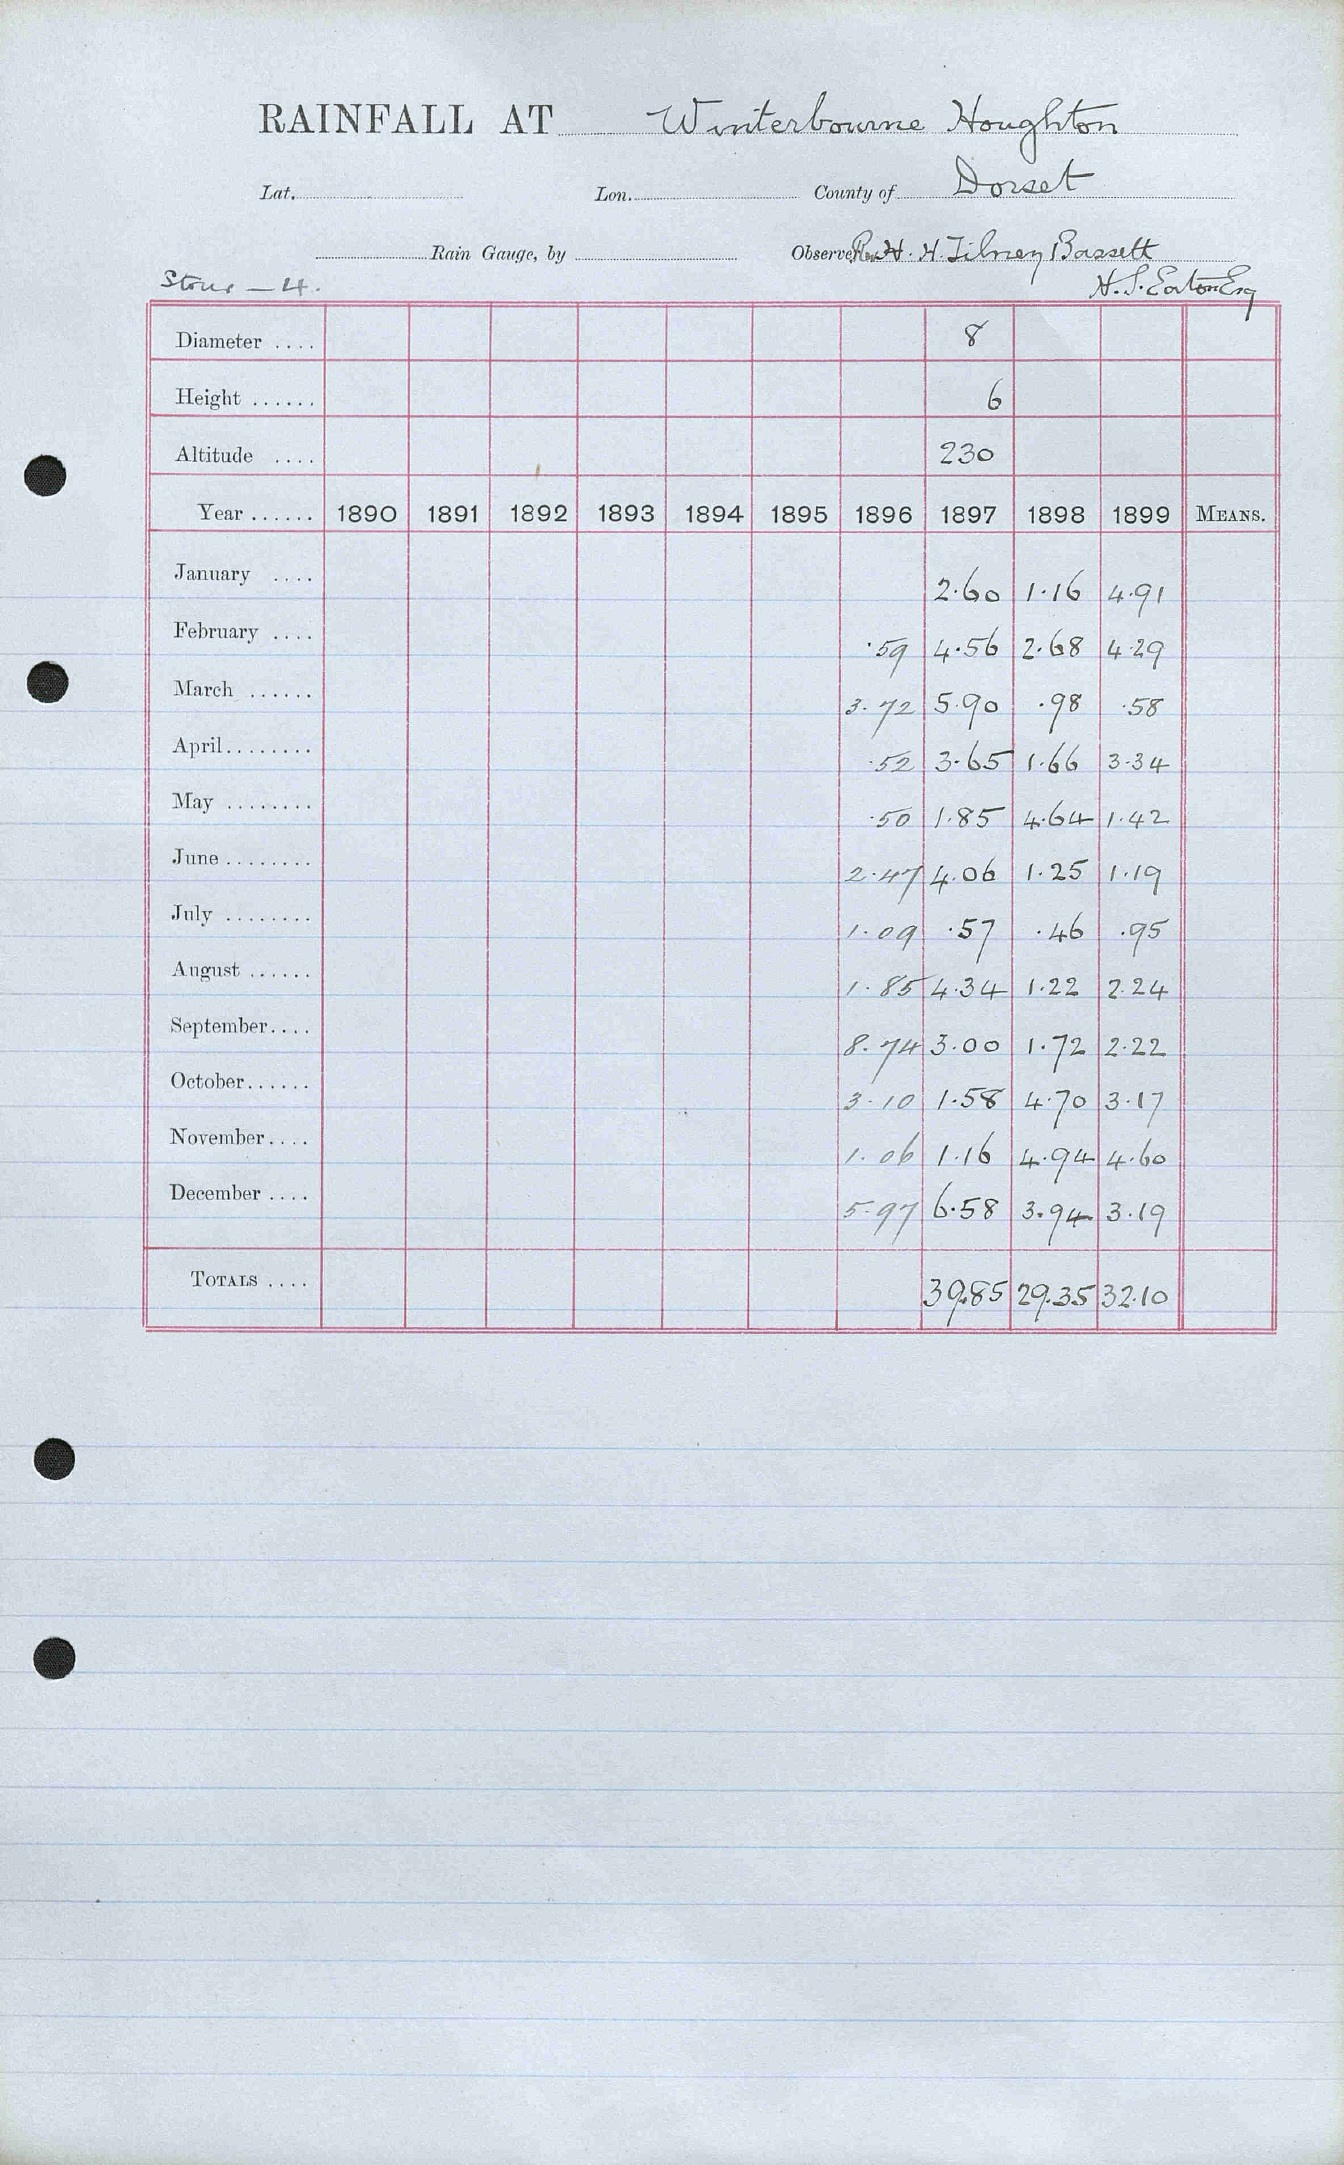 RAINFALL AT Winterbourne Houghton
Lat. Lon. County of Dorset
Rain Gauge, by Observer Rev H. H. Tilney Bassett
Stour – 4. H. S. Eaton Esq
Diameter .... 8
Height ...... 6
Altitude .... 230
Year ...... 1890 1891 1892 1893 1894 1895 1896 1897 1898 1899 MEANS.
January .... 2.60 1.16 4.91
February .... .59 4.56 2.68 4.29
March ...... 3.72 5.90 .98 .58
April........ .52 3.65 1.66 3.34
May ........ .50 1.85 4.64 1.42
June ........ 2.47 4.06 1.25 1.19
July ........ 1.09 .57 .46 .95
August ...... 1.85 4.34 1.22 2.24
September.... 8.74 3.00 1.72 2.22
October...... 3.10 1.58 4.70 3.17
November.... 1.06 1.16 4.94 4.60
December .... 5.97 6.58 3.94 3.19
TOTALS .... 39.85 29.35 32.10